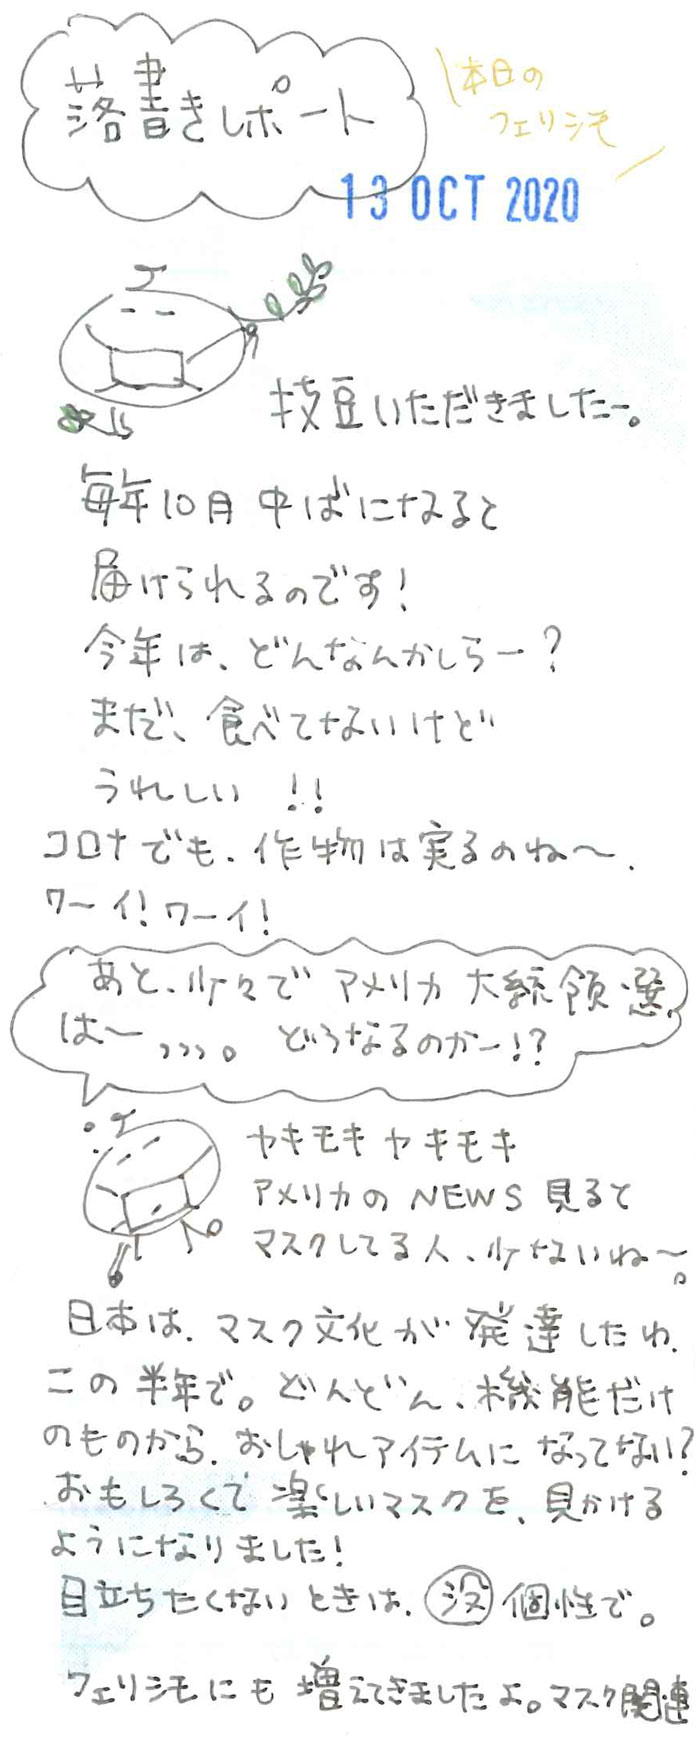 落書きレポート
\本日の
フェリシモ/
13 OCT 2020
枝豆いただきましたー。
毎年10月中ばになると
届けられるのです!
今年は、どんなんかしらー?
まだ、食べてないけど
うれしい!!
コロナでも、作物は実るのね〜.
ワーイ!ワーイ!
あと、少々でアメリカ大統領選
は〜,,,,。どうなるのかー!?
ヤキモキヤキモキ
アメリカのNEWS見ると
マスクしてる人、少ないね〜。
日本は、マスク文化が発達したわ.
この半年で。どんどん、機能だけ
のものから、おしゃれアイテムになってない?
おもしろくて楽しいマスクを、見かける
ようになりました!
目立ちたくないときは、没個性で。
フェリシモにも増えてきましたよ。マスク関連